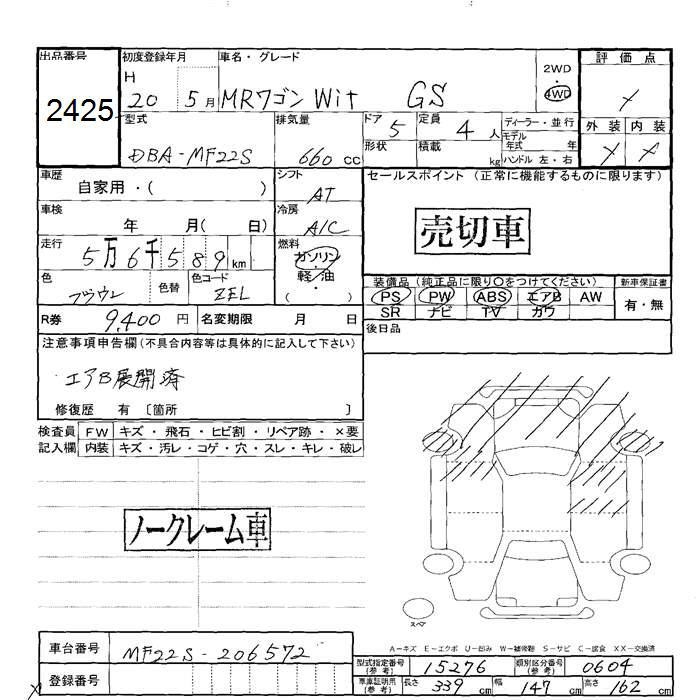 出品番号
2425
初度登録年月
H
20 5月
車名・グレード
MRワゴン Wit GS
2WD
・
4WD
評価点
外装 内装
型式
DBA-MF22S
排気量
660 cc
ドア
5
定員
4 人
形状
積載
kg
ディーラー・並行
モデル
年式 年
ハンドル 左・右
車歴
自家用・( )
シフト
AT
車検
年 月( 日)
冷房
A/C
走行
5万6千589km
燃料
ガソリン
・
軽油
( )
色
ブラウン
色替
色コード
ZEL
R券
9,400 円
名変期限 月 日
セールスポイント (正常に機能するものに限ります)
売切車
装備品 (純正品に限り○をつけてください)
PS PW ABS エアB AW
SR ナビ TV カワ
新車保証書
有・無
後日品
注意事項申告欄 (不具合内容等は具体的に記入して下さい)
エアB展開済
修復歴 有 〔箇所 〕
検査員
記入欄
FW キズ・飛石・ヒビ割・リペア跡・×要
内装 キズ・汚レ・コゲ・穴・スレ・キレ・破レ
ノークレーム車
スペア
A−キズ E−エクボ U−凹み W−補修跡 S−サビ C−腐食 XX−交換済
車台番号
MF22S-206572
登録番号
型式指定番号
(参考)
15276
類別区分番号
(参考)
0604
車庫証明用
(参考)
長さ 339 cm
幅 147 cm
高さ 162 cm